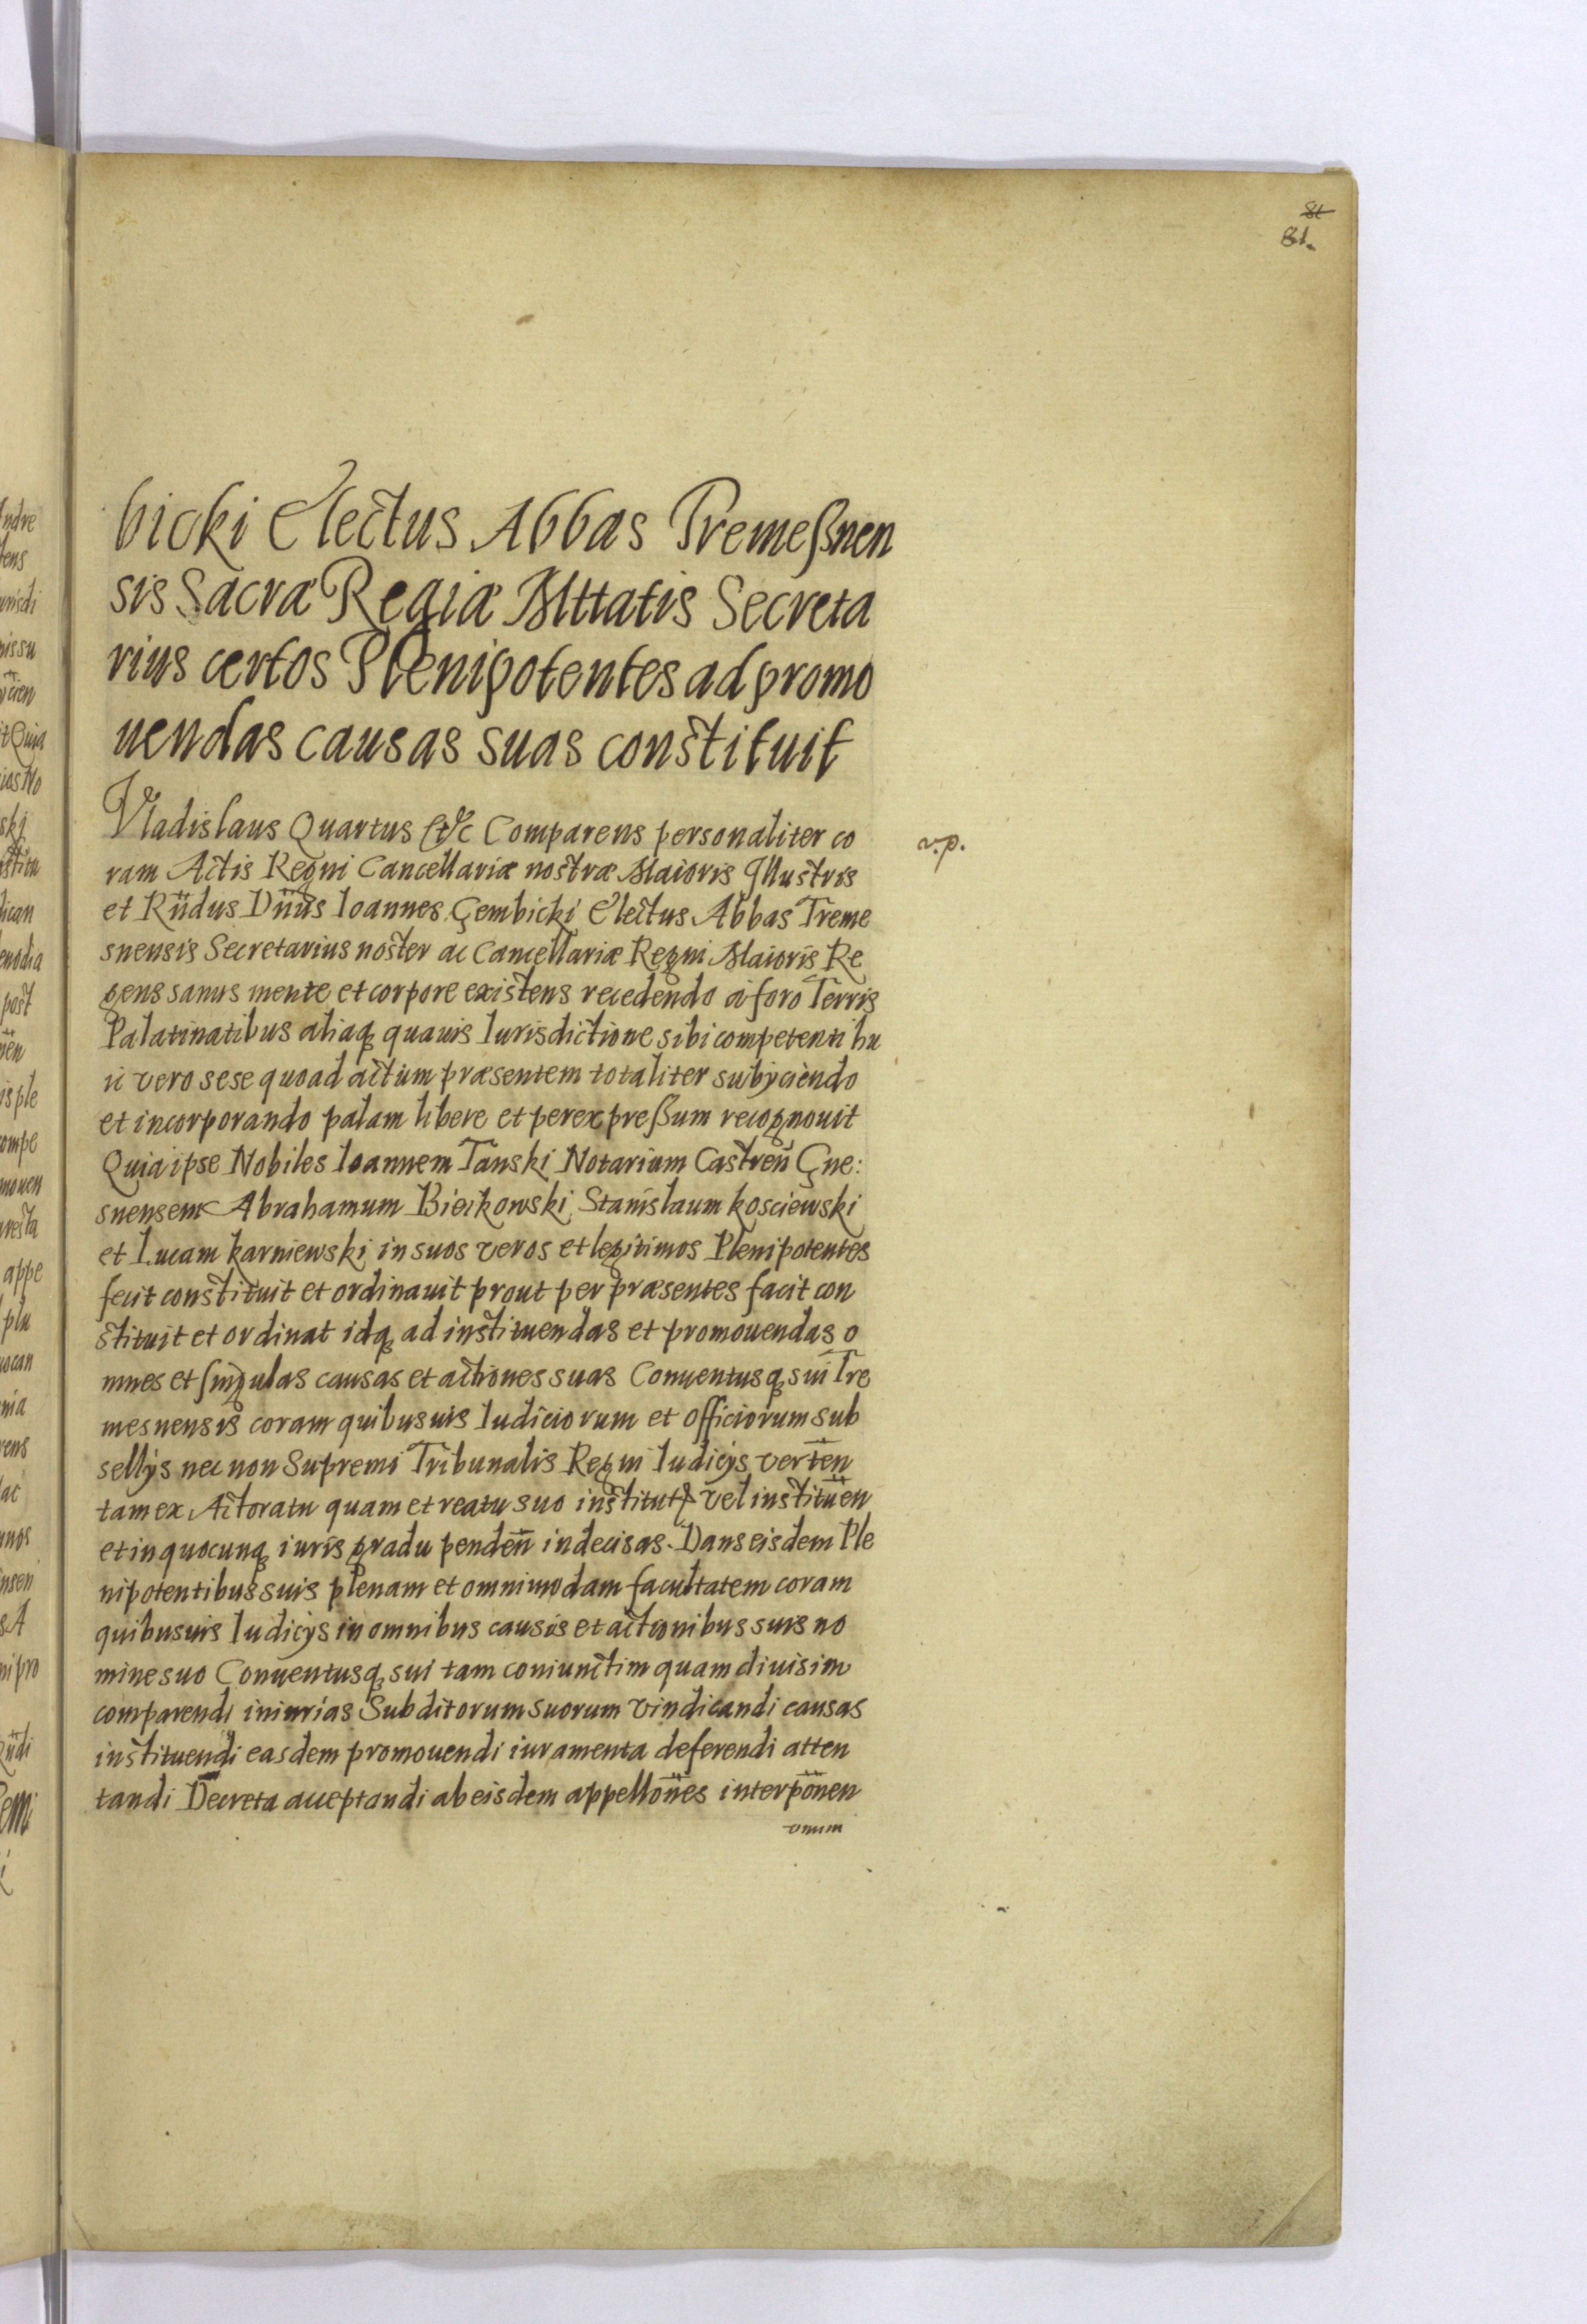 81
81.
bicki Electus Abbas Tremeßnen
sis Sacræ Regiæ Mttatis Secreta
rius certos Plenipotentes ad promo
uendas causas suas constituit
Vladislaus Quartus etc Comparens personaliter co
v.p.
ram Actis Regni Cancellariæ nostræ Maioris Illustris
et Rñdus Dñus Ioannes Gembicki Electus Abbas Treme
snensis Secretarius noster ac Cancellariæ Regni Maioris Re
gens sanus mente et corpore existens recedendo à foro Terris
Palatinatibus aliaq quauis Iurisdictione sibi competenti hu
ic vero sese quoad actum præsentem totaliter subÿciendo
et incorporando palam libere et per expreßum recognouit
Quia ipse Nobiles Ioannem Tanski Notarium Castreñ Gne:
snensem Abrahamum Bieikowski Stanislaum kosciewski
et Lucam karniewski in suos veros et legitimos Plenipotentes
fecit constituit et ordinauit prout per præsentes facit con
stituit et ordinat idq ad instituendas et promouendas o
mnes et singulas causas et actiones suas Conuentusq sui Tre
mesnensis coram quibusuis Iudiciorum et officiorum sub
sellÿs nec non Supremi Tribunalis Regni Iudicÿs verteñ
tam ex Actoratu quam et reatu suo institut vel instituen̈
et in quocunq iuris gradu pendeñ indecisas. Dans eisdem Ple
nipotentibus suis plenam et omnimodam facultatem coram
quibusuis Iudicÿs in omnibus causis et actionibus suis no
mine suo Conuentusq sui tam coniunctim quam diuisim
comparendi iniurias Subditorum suorum vindicandi causas
instituendi easdem promouendi iuramenta deferendi atten
tandi Decreta acceptandi ab eisdem appelloñes interpõnen
vnum